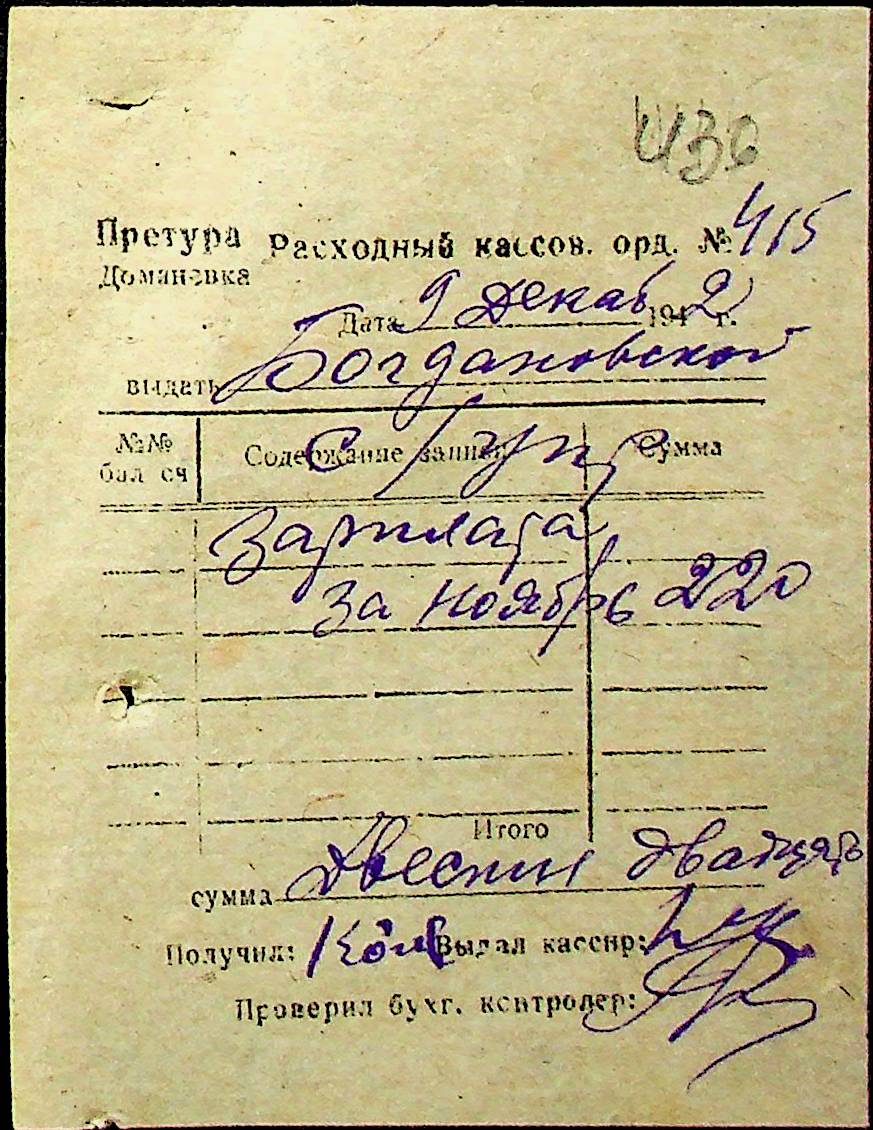 ИЗО
Претура Расходный кассов. орд. № 415
Доманевка
Дата 9 Декаб 1942 г.
выдать Богдановской
№№ Содержание записи Сумма
бал сч
Зарплата
за ноябрь 220
Итого
сумма Двести двадцать
Получил: Выдал кассир:
Проверил бухг. контролер: